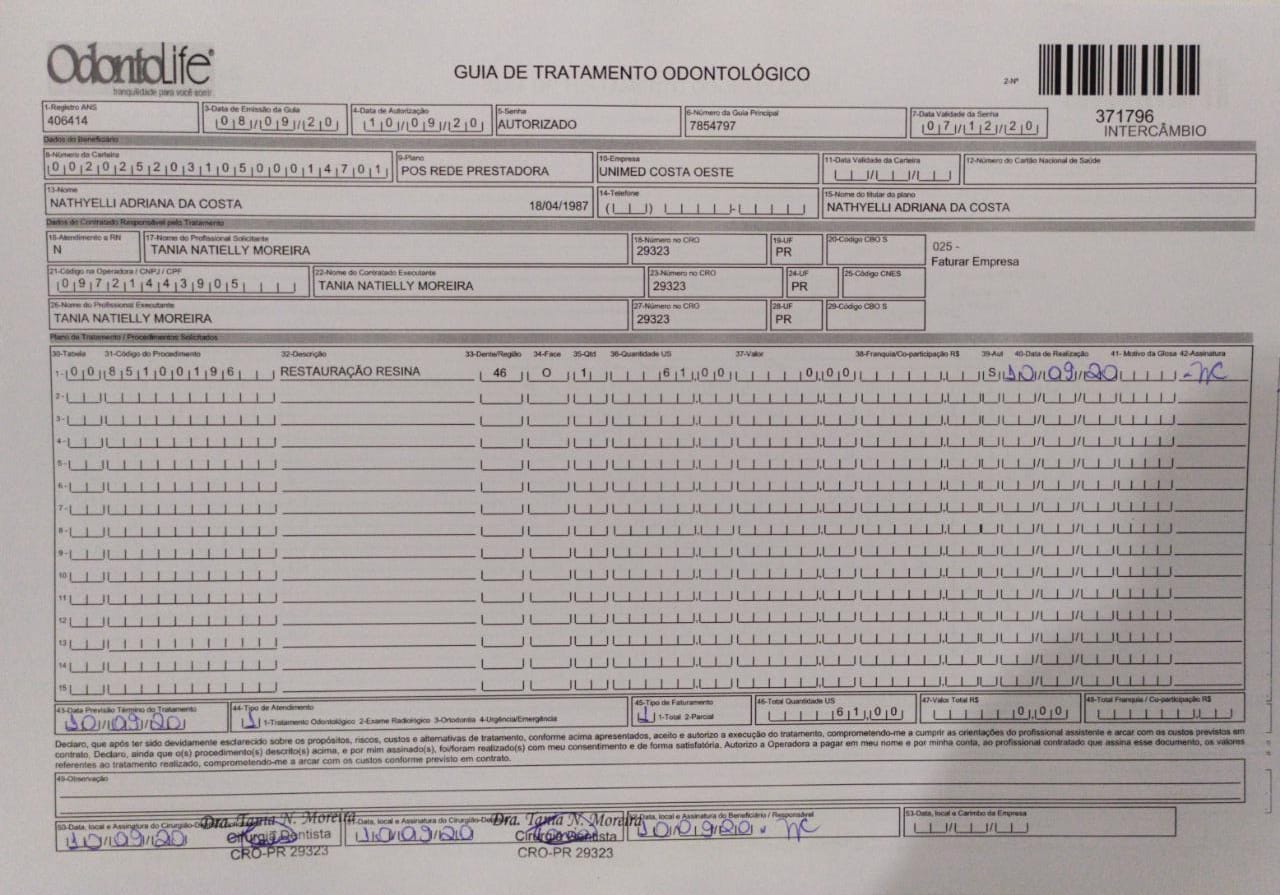 OdontoLife
tranquilidade para você sorrir.
GUIA DE TRATAMENTO ODONTOLÓGICO
2-Nº
371796
INTERCÂMBIO
1-Registro ANS
406414
3-Data de Emissão da Guia
08/09/20
4-Data de Autorização
10/09/20
5-Senha
AUTORIZADO
6-Número da Guia Principal
7854797
7-Data Validade da Senha
07/12/20
Dados do Beneficiário
8-Número da Carteira
00202520310500014701
9-Plano
POS REDE PRESTADORA
10-Empresa
UNIMED COSTA OESTE
11-Data Validade da Carteira
12-Número do Cartão Nacional de Saúde
13-Nome
NATHYELLI ADRIANA DA COSTA 18/04/1987
14-Telefone
15-Nome do titular do plano
NATHYELLI ADRIANA DA COSTA
Dados do Contratado Responsável pelo Tratamento
16-Atendimento a RN
N
17-Nome do Profissional Solicitante
TANIA NATIELLY MOREIRA
18-Número no CRO
29323
19-UF
PR
20-Código CBO S
025 -
Faturar Empresa
21-Código na Operadora / CNPJ / CPF
09721443905
22-Nome do Contratado Executante
TANIA NATIELLY MOREIRA
23-Número no CRO
29323
24-UF
PR
25-Código CNES
26-Nome do Profissional Executante
TANIA NATIELLY MOREIRA
27-Número no CRO
29323
28-UF
PR
29-Código CBO S
Plano de Tratamento / Procedimentos Solicitados
30-Tabela 31-Código do Procedimento 32-Descrição 33-Dente/Região 34-Face 35-Qtd 36-Quantidade US 37-Valor 38-Franquia/Co-participação R$ 39-Aut 40-Data de Realização 41- Motivo da Glosa 42-Assinatura
1- 00 85100196 RESTAURAÇÃO RESINA 46 O 1 61,00 0,00 S 10/09/20 NC
2-
3-
4-
5-
6-
7-
8-
9-
10
11
12
13
14
15
43-Data Previsão Término do Tratamento
10/09/20
44-Tipo de Atendimento
1 1-Tratamento Odontológico 2-Exame Radiológico 3-Ortodontia 4-Urgência/Emergência
45-Tipo de Faturamento
1 1-Total 2-Parcial
46-Total Quantidade US
61,00
47-Valor Total R$
0,00
48-Total Franquia / Co-participação R$
Declaro, que após ter sido devidamente esclarecido sobre os propósitos, riscos, custos e alternativas de tratamento, conforme acima apresentados, aceito e autorizo a execução do tratamento, comprometendo-me a cumprir as orientações do profissional assistente e arcar com os custos previstos em
contrato. Declaro, ainda que o(s) procedimento(s) descrito(s) acima, e por mim assinado(s), foi/foram realizado(s) com meu consentimento e de forma satisfatória. Autorizo a Operadora a pagar em meu nome e por minha conta, ao profissional contratado que assina esse documento, os valores
referentes ao tratamento realizado, comprometendo-me a arcar com os custos conforme previsto em contrato.
49-Observação
50-Data, local e Assinatura do Cirurgião-De
10/09/20
Dra. Tania N. Moreira
Cirurgiã Dentista
CRO-PR 29323
Data, local e Assinatura do Cirurgião-De
10/09/20
Dra. Tania N. Moreira
Cirurgiã Dentista
CRO-PR 29323
Data, local e Assinatura do Beneficiário / Responsável
10/09/20. NC
53-Data, local e Carimbo da Empresa